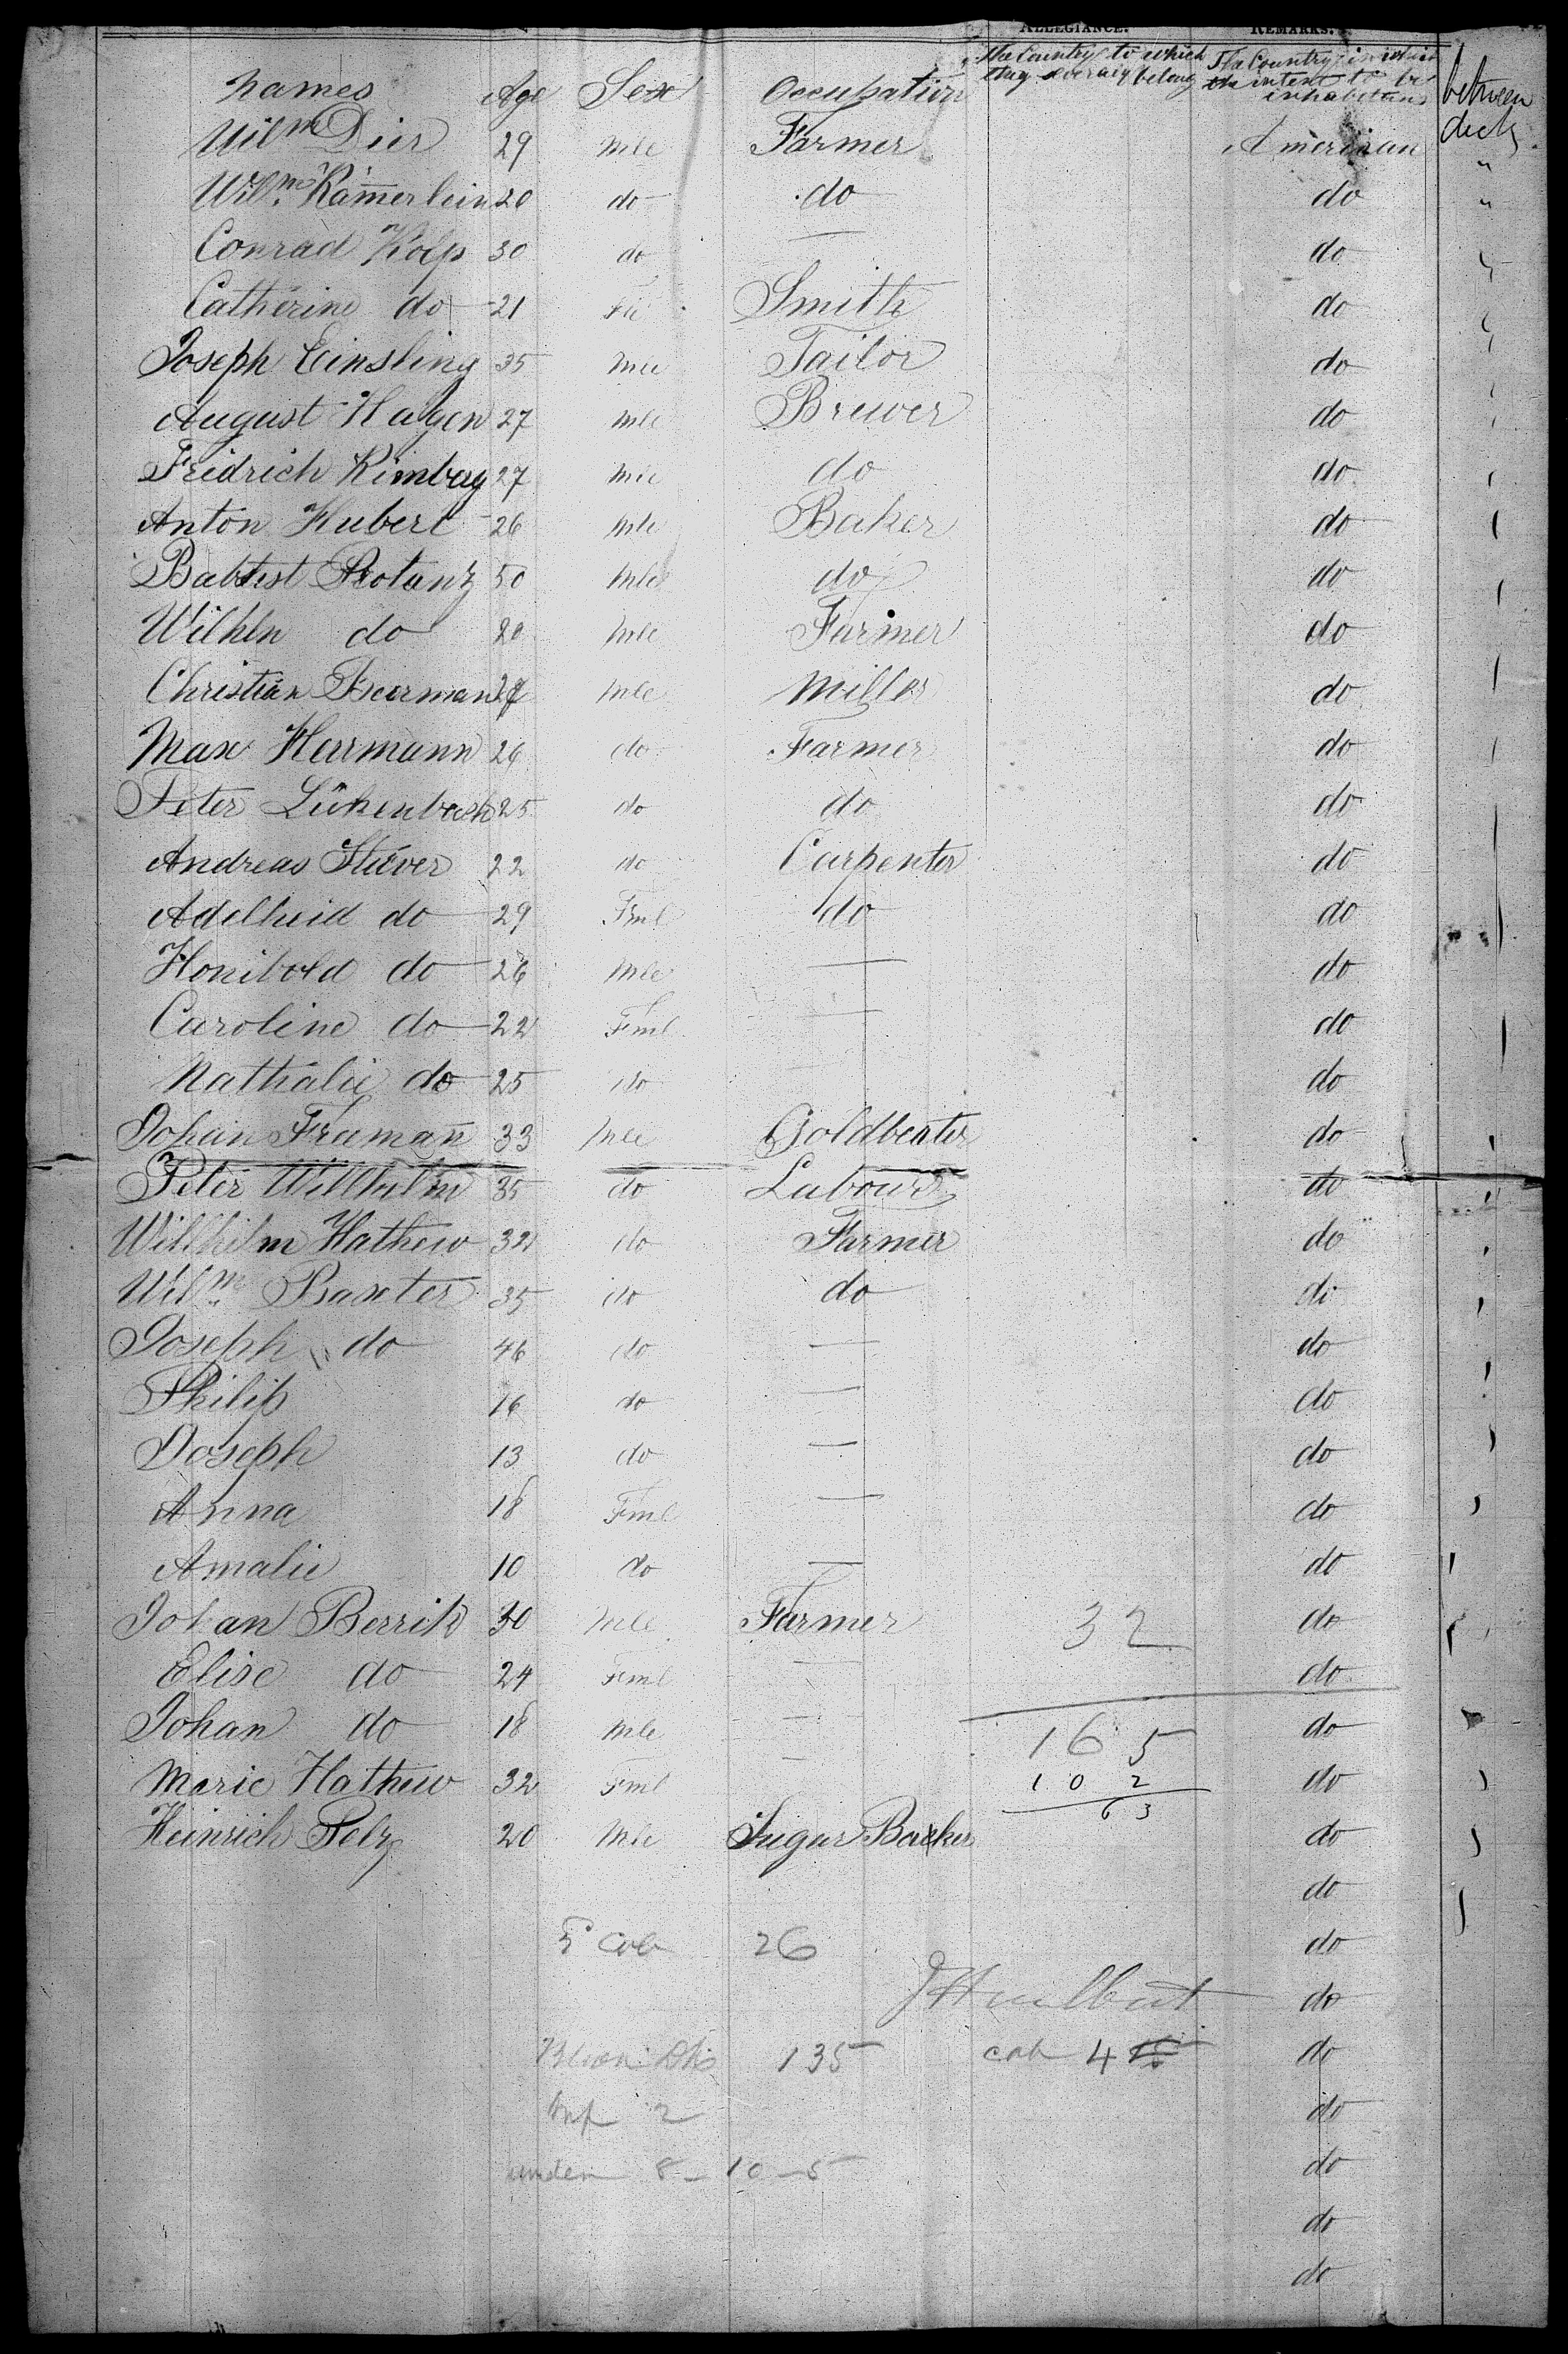 ALLEGIANCE. REMARKS.
Names Age Sex Occupation the Country to which they severally belong The Country in which the intent to be inhabetans between decks
Wilm Dier 29 Mle Farmer American "
Wilm. Kam̄erlein 20 do do do "
Conrad Kolp 30 do — do
Catherine do 21 Smith do
Joseph Einsling 35 Mle Tailor do
August Hagen 27 Mle Brewer do
Fridrich Kimberg 27 Mle do do
Anton Hubert 26 Mle Baker do
Babtist 50 Mle do do
Wilhlm do 20 Mle Farmer do
Christian Beerman Mle Miller do
Max Herrmann 26 do Farmer do
Peter Lückenbach 25 do do do
Andreas Stüver 22 do Carpenter do
Adelheid do 29 Fml do do
Honibold do 26 Mle — do
Caroline do 22 Fml — do
Nathalie do 25 do do
Johan Framan̄ 33 Mle Goldbeater do
Peter Willhelm 35 do Labour do
Willhilm Hathew 32 do Farmer do
Wilm Baxter 35 do do do
Joseph do 46 do — do
Philip 16 do — do
Joseph 13 do — do
Anna 18 Fml — do
Amalie 10 do — do
Johan Berrik 30 Mle Farmer 32 do
Elise do 24 Fml — do
Johan do 18 Mle — 165 do
Marie Hathew 32 Fml — 102 do
63
Heinrich Pelz 20 Mle Sugar Backer do
do
5 Cab 26 do
J Hurlbut do
135 cab 4 do
Inf 2 do
under 8 - 10 - 5 do
do
do